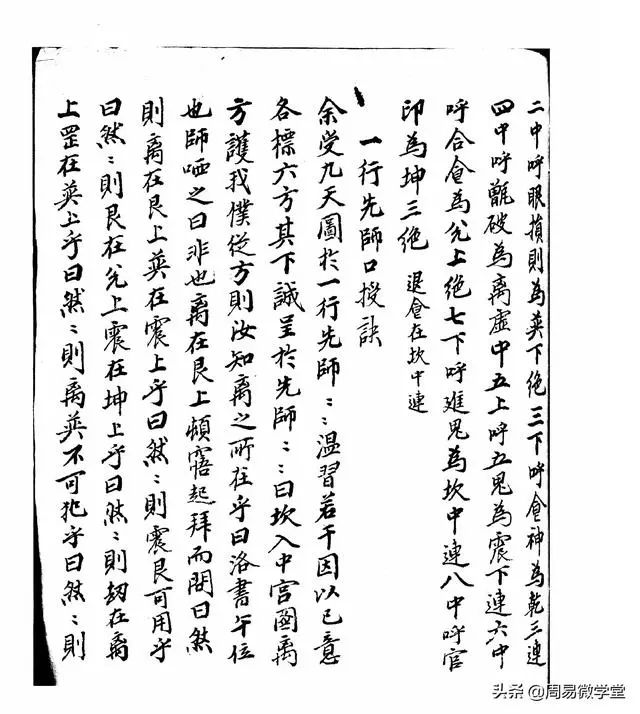 二中呼眼損則為巽下絕三下呼會神為乾三連
四中呼甑破為离虛中五上呼五鬼為震下連六中
呼合會為兌上絕七下呼進鬼為坎中連八中呼官
印為坤三絕 退會在坎中連
一行先師口授訣
余受九天圖於一行先師〻〻温習若干因以己意
各標六方其下誠呈於先師〻〻曰坎入中宮圖离
方護我僕從方則汝知离之所在乎曰洛書午位
也師哂之曰非也离在艮上頓寤起拜而問曰然
則离在艮上巽在震上乎曰然〻則震艮可用乎
曰然〻則艮在兌上震在坤上乎曰然〻則劫在离
上罡在巽上乎曰然〻則离巽不可犯乎曰然〻則
头条@周易微学堂